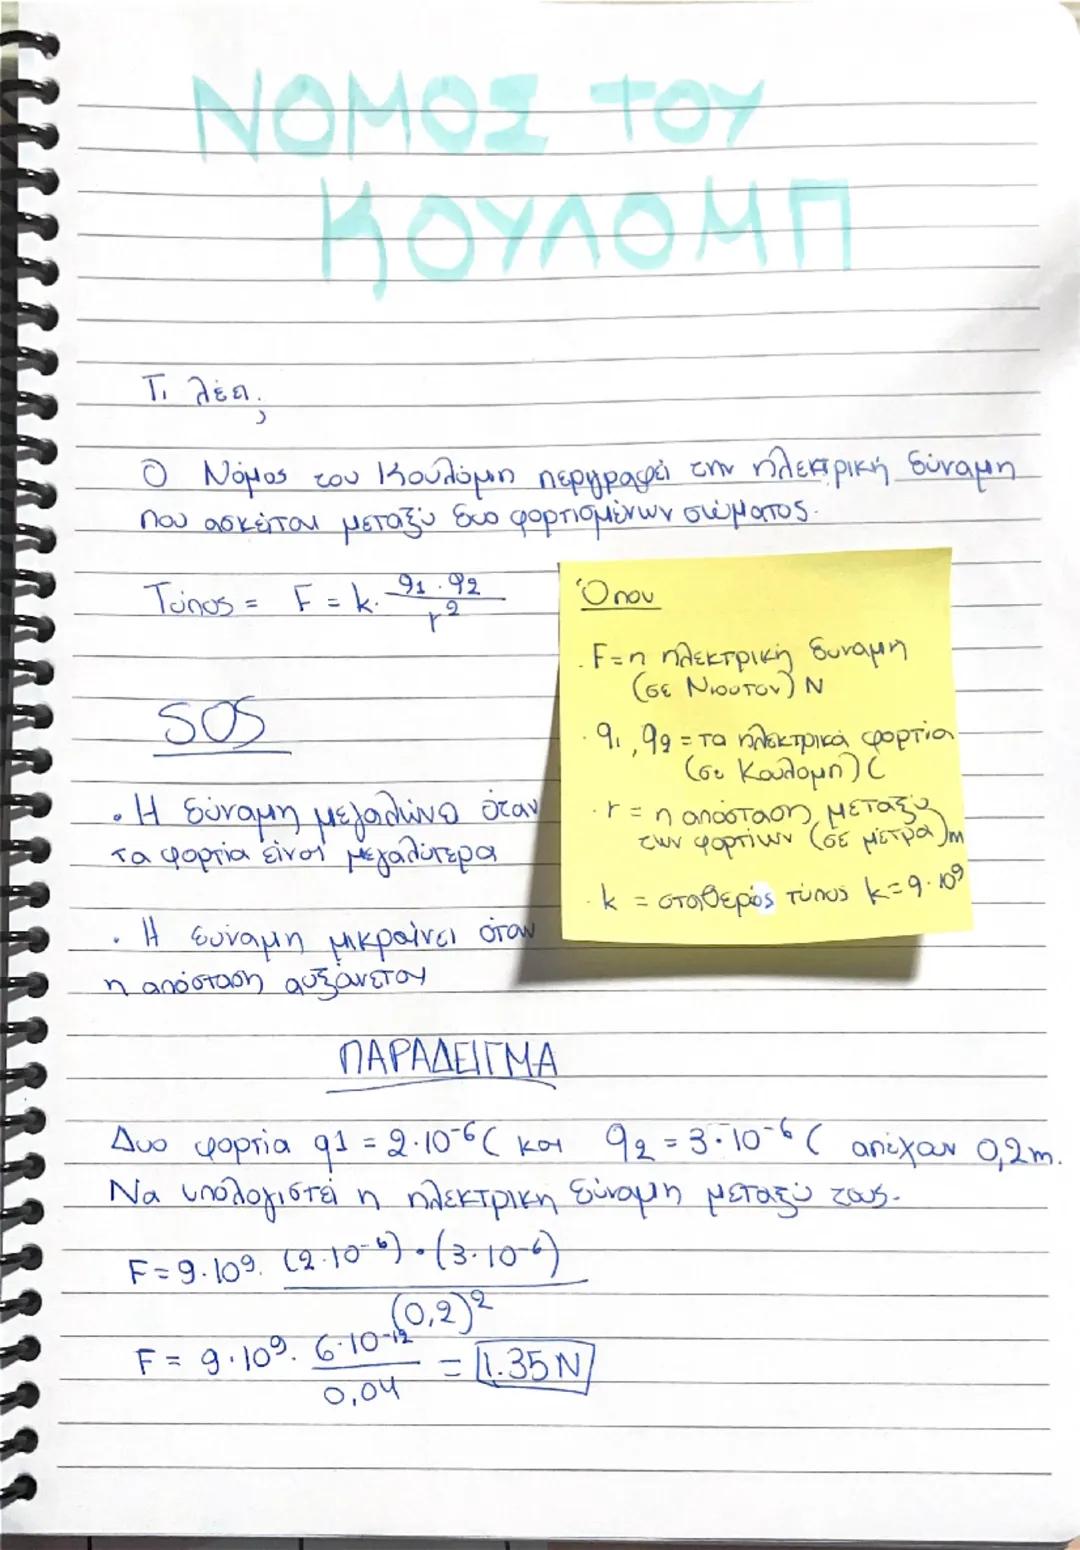 ΝΟΜΟΣ ΤΟΥ
ΚΟΥΛΟΜΠ
Τι λέει;
Ο Νόμος του Κουλόμπ περιγραφεί την ηλεκτρική δύναμη
που ασκείται μεταξύ δυο φορτισμένων σώματος.
Τύπος = F = k. q1 . q2 / r^2
Όπου
. F = η ηλεκτρική δυναμη
(σε Νιουτον) N
. q1, q2 = τα ηλεκτρικά φορτία
(σε Κουλομπ) C
. r = η απόσταση μεταξύ
των φορτίων (σε μέτρα) m
. k = σταθερός τύπος k=9·10^9
SOS
. Η δύναμη μεγαλώνει όταν
τα φορτία είναι μεγαλύτερα
. Η δύναμη μικραίνει όταν
η απόσταση αυξάνεται
ΠΑΡΑΔΕΙΓΜΑ
Δυο φορτία q1 = 2·10^-6 C και q2 = 3·10^-6 C απέχουν 0,2m.
Να υπολογιστεί η ηλεκτρικη δύναμη μεταξύ τους.
F = 9·10^9. (2·10^-6)·(3·10^-6) / (0,2)^2
F = 9·10^9. 6·10^-12 / 0,04 = 1.35 N